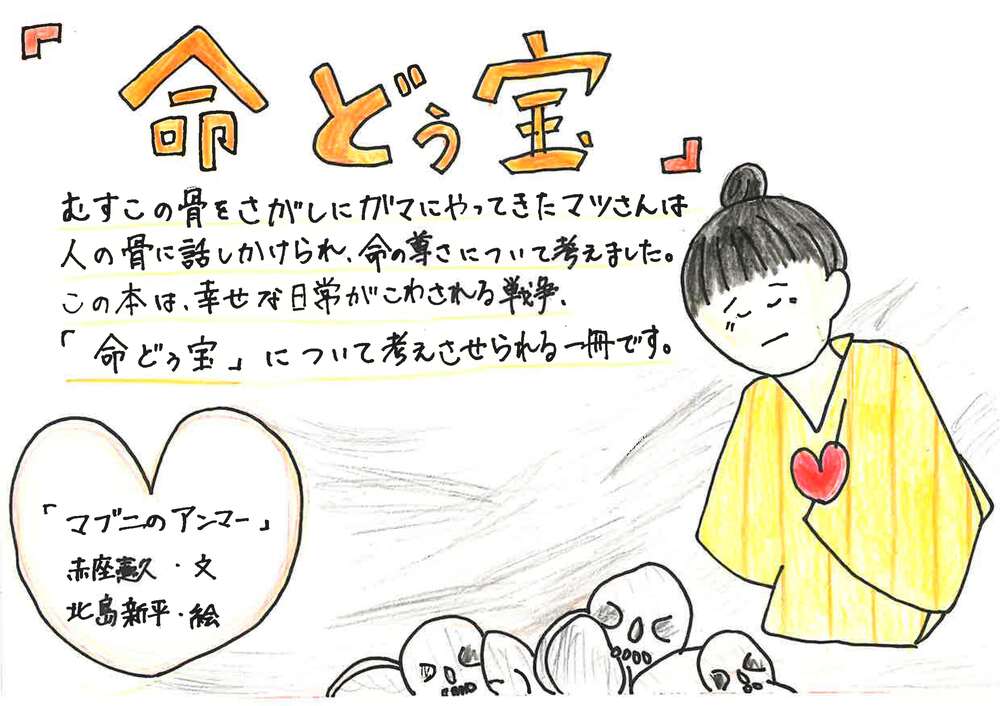 『命どぅ宝』
むすこの骨をさがしにガマにやってきたマツさんは
人の骨に話しかけられ、命の尊さについて考えました。
この本は、幸せな日常がこわされる戦争、
「命どぅ宝」について考えさせられる一冊です。
「マブニのアンマー」
赤座憲久・文
北島新平・絵